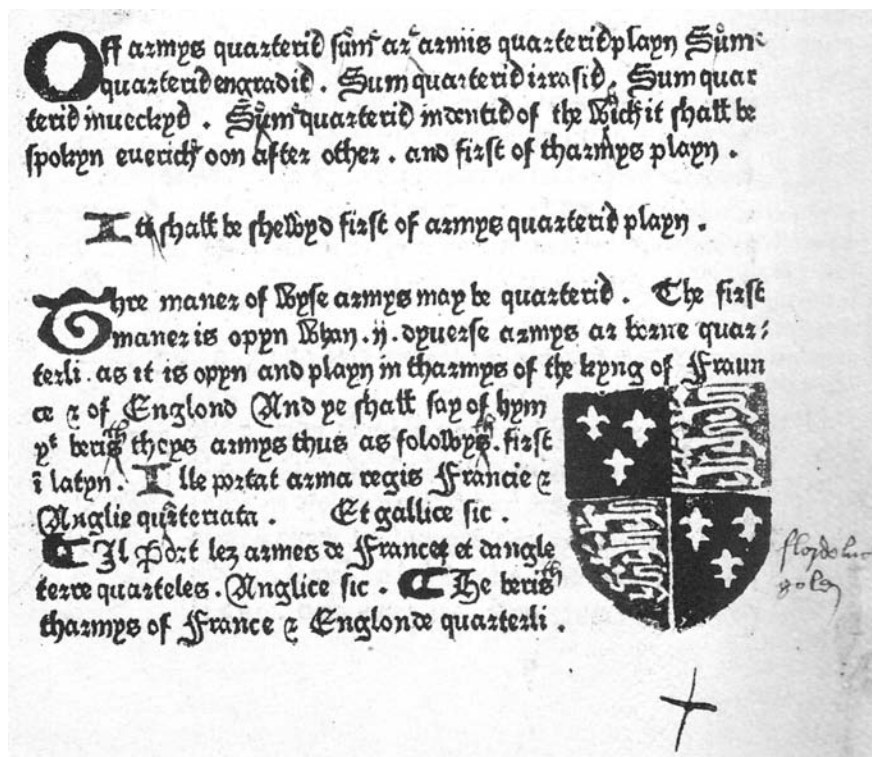 Off armys quarterid sum ar armis quarterid playn Sum
quarterid engradid . Sum quarterid irrasid . Sum quar
terid inueckyd . Sum quarterid indentid of the Wich it shall be
spokyn euerich oon after other . and first of tharmys playn .
It shall be shewyd first of armys quarterid playn .
Thre maner of Wyse armys may be quarterid . The first
maner is opyn Whan .ij. dyuerse armys ar borne quar:
terli . as it is opyn and playn in tharmys of the kyng of Fraun
ce ⁊ of Englond And ye shall say of hym
yͭ berith theys armys thus as folowyth . first
ī latyn . Ille portat arma regis Francie ⁊
Anglie quateriata . Et gallice sic .
¶ Il Port lez armes de France et dangle
terre quarteles . Anglice sic . ¶ He berith
tharmys of France ⁊ Englonde quarterli .